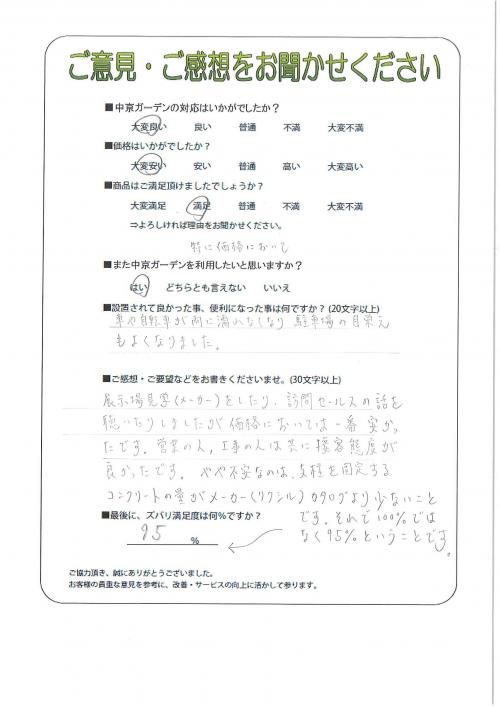 ご意見・ご感想をお聞かせください
■中京ガーデンの対応はいかがでしたか？
大変良い 良い 普通 不満 大変不満
■価格はいかがでしたか？
大変安い 安い 普通 高い 大変高い
■商品はご満足頂けましたでしょうか？
大変満足 満足 普通 不満 大変不満
⇒よろしければ理由をお聞かせください。
特に価格において
■また中京ガーデンを利用したいと思いますか？
はい どちらとも言えない いいえ
■設置されて良かった事、便利になった事は何ですか？(20文字以上)
車や自転車が雨に濡れなくなり 駐車場の見栄え
もよくなりました。
■ご感想・ご要望などをお書きくださいませ。(30文字以上)
展示場見学(メーカー)をしたり、訪問セールスの話を
聴いたりしましたが価格においては一番安かっ
たです。営業の人、工事の人は共に接客態度が
良かったです。やや不安なのは、支柱を固定する
コンクリートの量がメーカー(リクシル)カタログより少ないこと
です。それで100%では
なく95%ということです。
■最後に、ズバリ満足度は何%ですか？
95 %
ご協力頂き、誠にありがとうございました。
お客様の貴重な意見を参考に、改善・サービスの向上に活かして参ります。